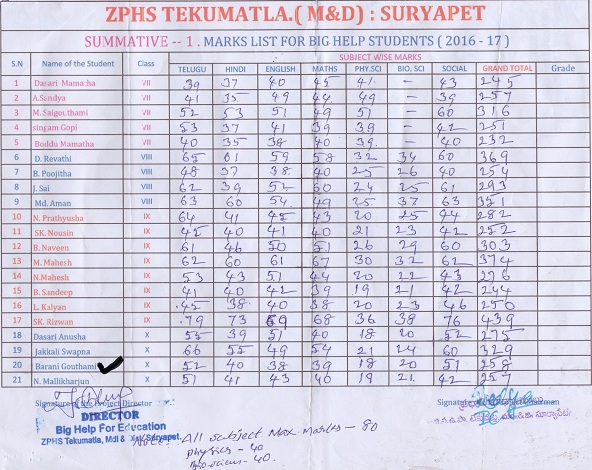 ZPHS TEKUMATLA.( M&D) : SURYAPET
SUMMATIVE -- 1 . MARKS LIST FOR BIG HELP STUDENTS ( 2016 - 17 )
S.N Name of the Student Class SUBJECT WISE MARKS Grade
TELUGU HINDI ENGLISH MATHS PHY.SCI BIO. SCI SOCIAL GRAND TOTAL
1 Dasari Mamatha VII 39 37 40 45 41 - 43 245
2 A.Sandya VII 41 35 49 44 49 - 39 257
3 M. Saigouthami VII 52 53 51 49 51 - 60 316
4 singam Gopi VII 53 37 41 39 39 - 42 251
5 Boddu Mamatha VII 40 35 38 40 39 - 40 232
6 D. Revathi VIII 65 61 59 58 32 34 60 369
7 B. Poojitha VIII 48 37 38 40 25 26 40 254
8 J. Sai VIII 62 39 52 60 24 25 61 293
9 Md. Aman VIII 63 60 54 49 25 37 63 351
10 N. Prathyusha IX 64 41 45 43 20 25 44 282
11 SK. Nousin IX 45 40 41 40 21 23 42 252
12 B. Naveen IX 61 46 50 51 26 29 60 303
13 M. Mahesh IX 62 60 61 67 30 32 62 374
14 N.Mahesh IX 53 43 51 44 20 22 43 276
15 B. Sandeep IX 41 40 42 39 19 21 42 244
16 L. Kalyan IX 45 38 40 38 20 23 46 250
17 SK. Rizwan IX 79 73 69 68 36 38 76 439
18 Dasari Anusha X 55 39 51 40 18 20 52 275
19 Jakkali Swapna X 66 55 49 54 21 24 60 329
20 Barani Gouthami X 52 40 38 39 18 20 51 258
21 N. Mallikharjun X 51 41 43 40 19 21 42 257
Signature of the Project Director
DIRECTOR
Big Help For Education
ZPHS Tekumatla, Mdl & Suryapet.
Note: All subject Max. Marks - 80
Physics - 40
Bio science - 40.